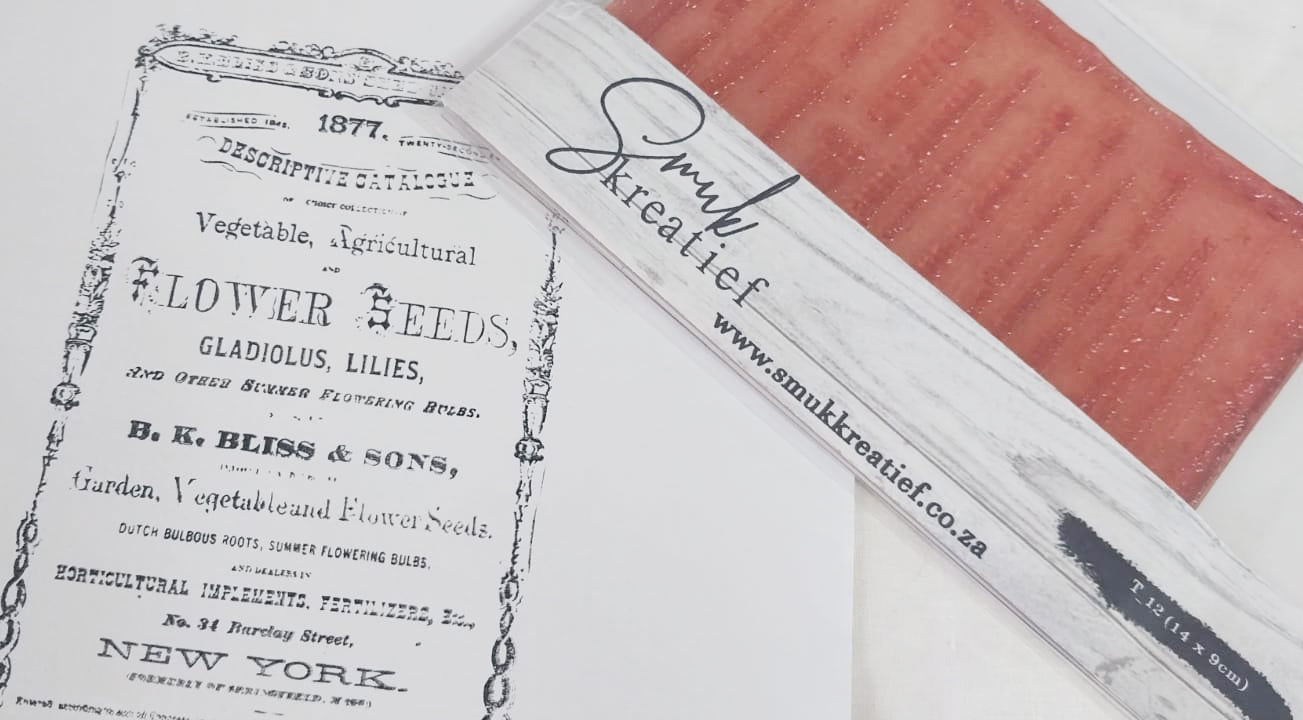 B. K. BLISS & SONS'
ESTABLISHED 1845.
1877.
TWENTY-SECOND
DESCRIPTIVE CATALOGUE
OF CHOICE COLLECTION OF
Vegetable, Agricultural
AND
FLOWER SEEDS,
GLADIOLUS, LILIES,
AND OTHER SUMMER FLOWERING BULBS.
B. K. BLISS & SONS,
Garden, Vegetable and Flower Seeds.
DUTCH BULBOUS ROOTS, SUMMER FLOWERING BULBS,
AND DEALERS IN
HORTICULTURAL IMPLEMENTS, FERTILIZERS, Etc.,
No. 34 Barclay Street,
NEW YORK.
(FORMERLY OF SPRINGFIELD,
Smuk
kreatief
www.smukkreatief.co.za
T_12 (14 x 9cm)